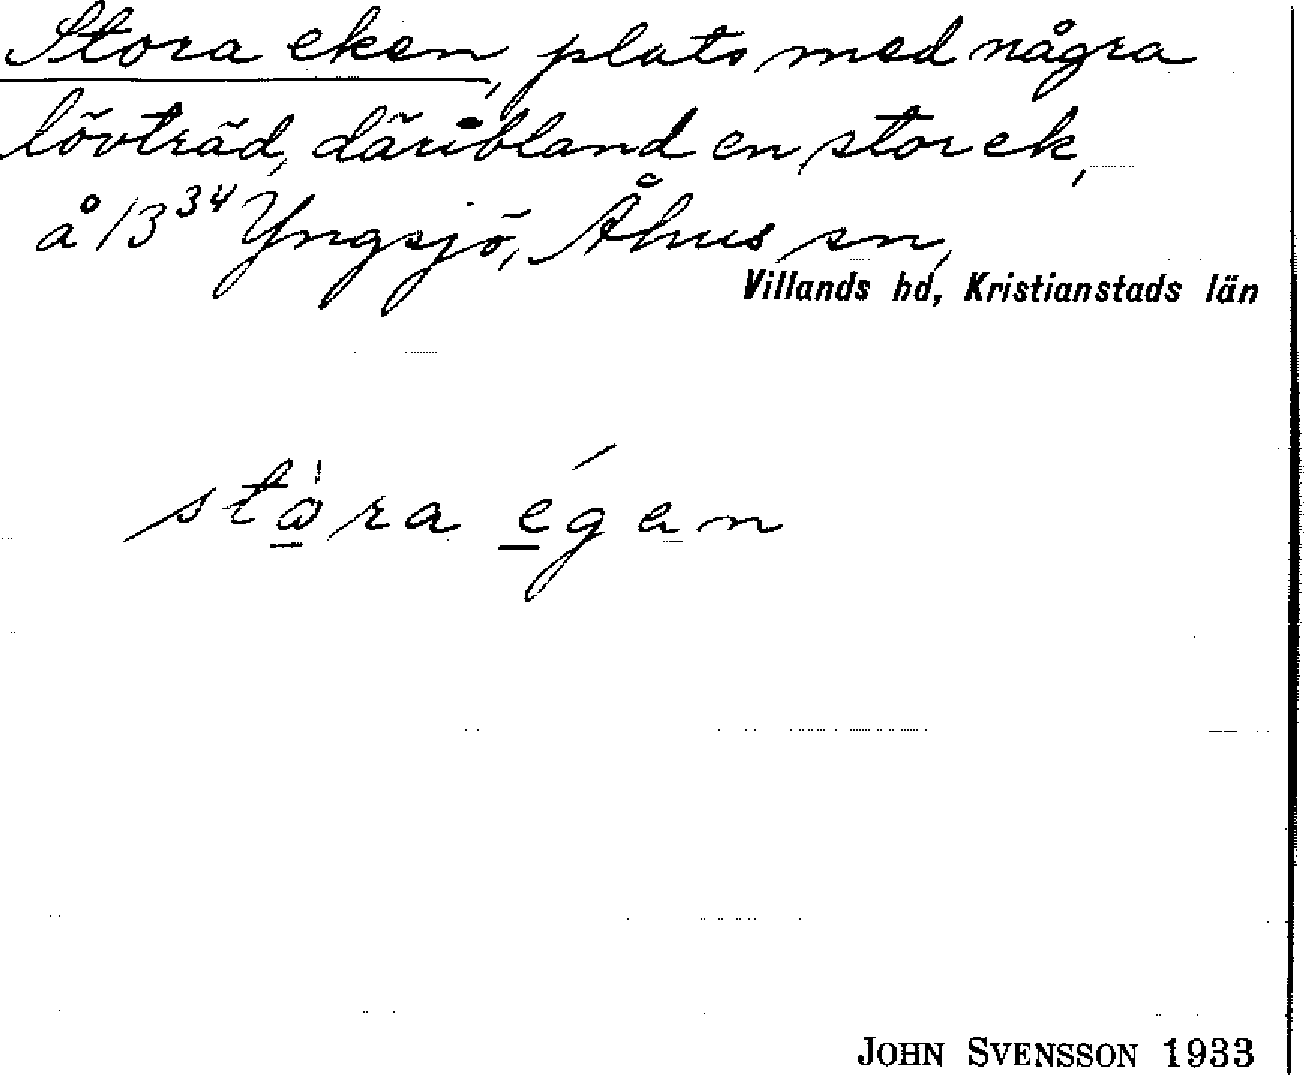 Stora eken, plats med några
lövträd, däribland en stor ek,
å 13³⁴ Yngsjö, Åhus sn,
Villands hd, Kristianstads län
stòra égen
JOHN SVENSSON 1933